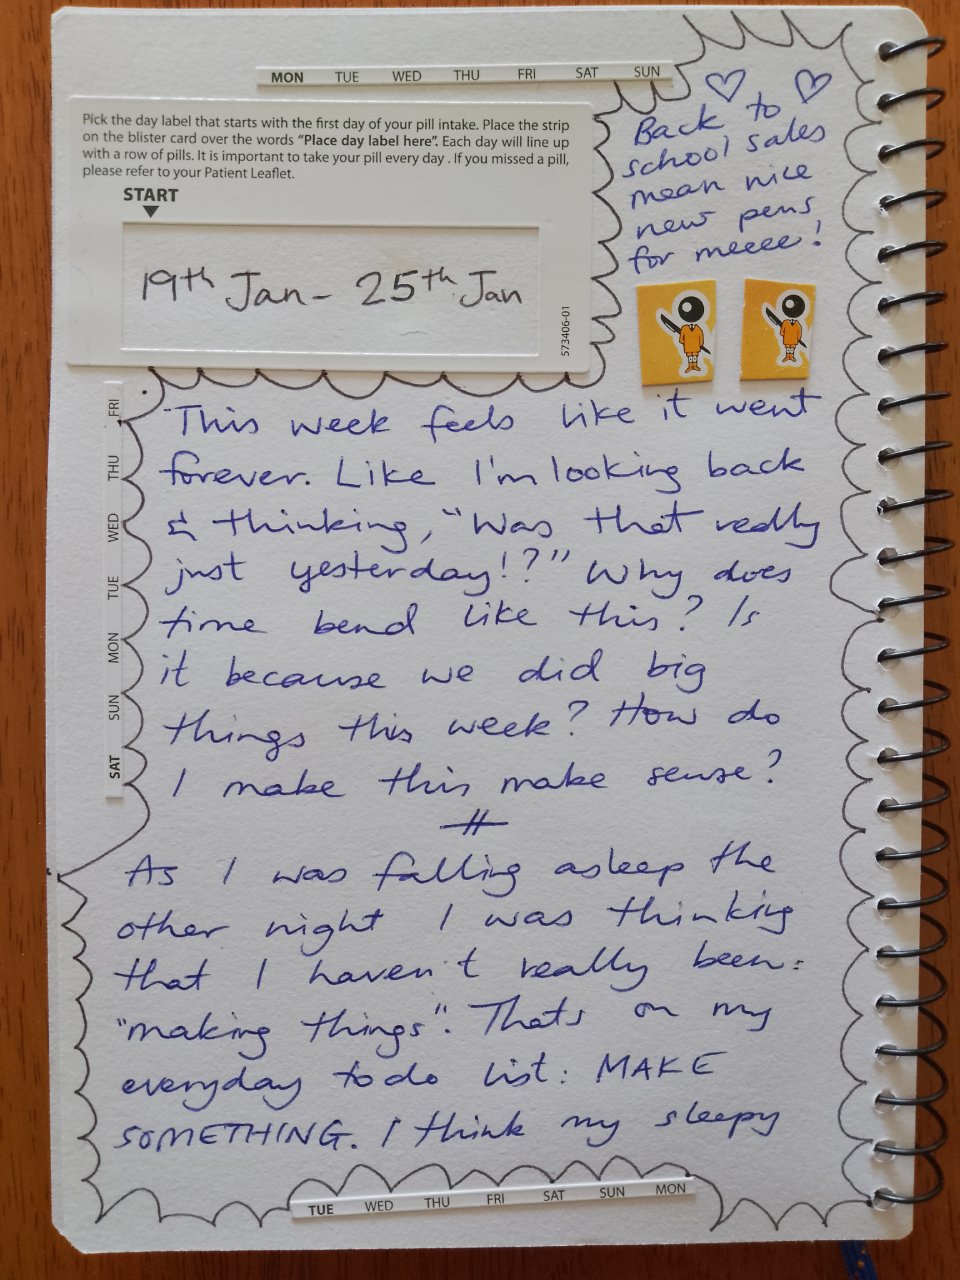 MON TUE WED THU FRI SAT SUN
Pick the day label that starts with the first day of your pill intake. Place the strip
on the blister card over the words "Place day label here". Each day will line up
with a row of pills. It is important to take your pill every day . If you missed a pill,
please refer to your Patient Leaflet.
START
19th Jan - 25th Jan
573406-01
Back to
school sales
mean nice
new pens
for meeee!
FRI THU WED TUE MON SUN SAT
This week feels like it went
forever. Like I'm looking back
& thinking, "Was that really
just yesterday!?" Why does
time bend like this? Is
it because we did big
things this week? How do
I make this make sense?
As I was falling asleep the
other night I was thinking
that I haven't really been
"making things". Thats on my
everyday to do list: MAKE
SOMETHING. I think my sleepy
TUE WED THU FRI SAT SUN MON